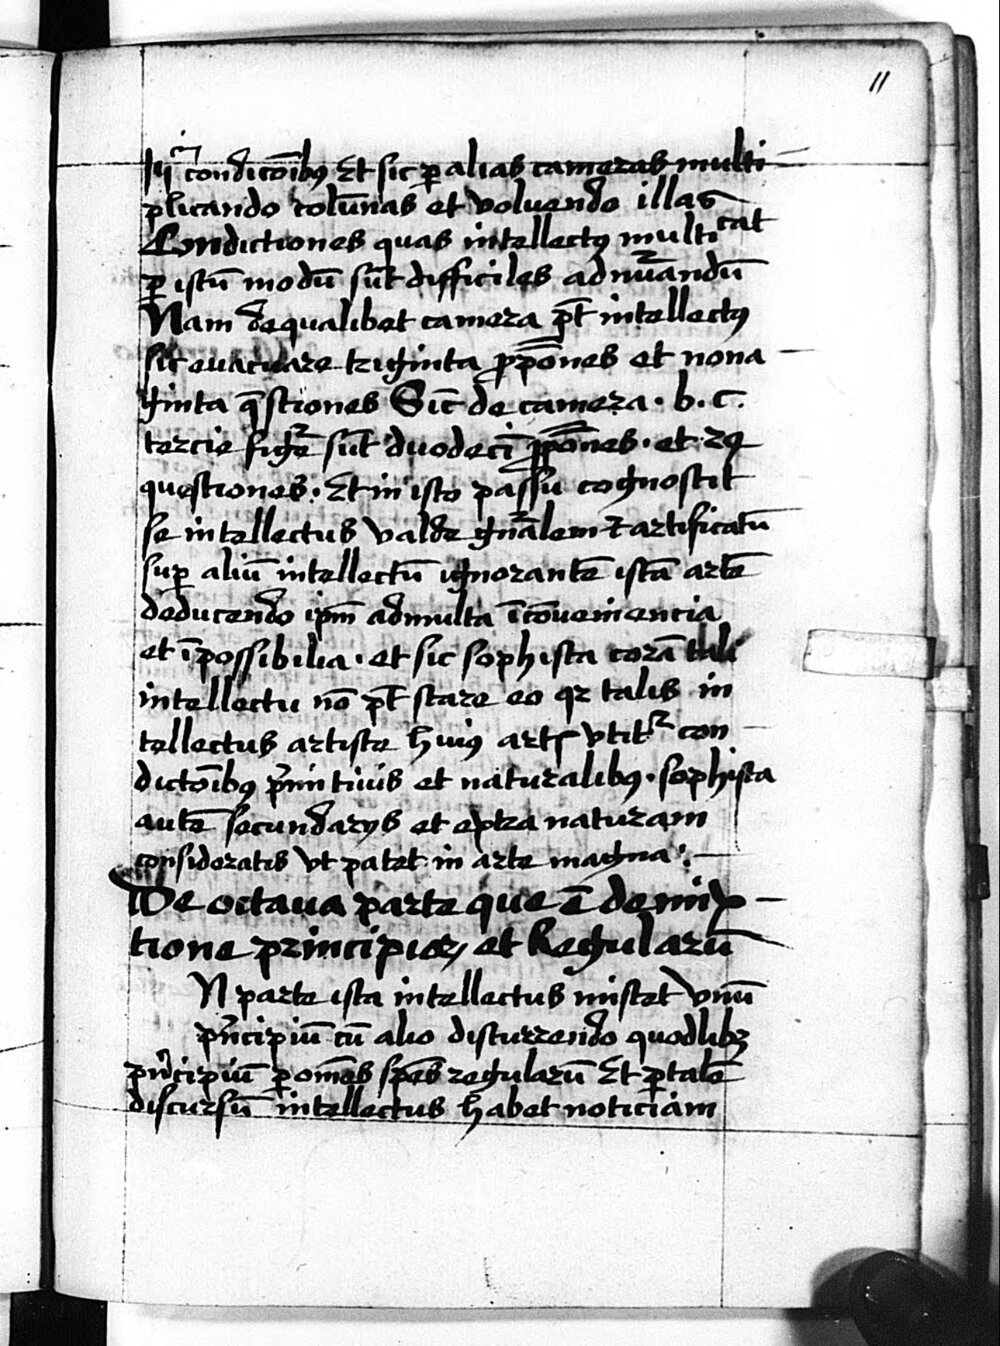 11
condicōibꝯ Et sic ꝑ alias cameras multi
plicando colūnas et volvendo illas
Condictiones quas intellectꝯ multicat
ꝑ istū modū sūt difficiles ad nūandū
Nam de qualibet camera pt̄ intellectꝯ
sic evacuare triginta ꝓpōnes et nona
ginta qūstiones Sic̄ de camera . b . c .
tercie figē sūt duodecī ꝓpōnes . et 24
questiones . Et in isto passu cognoscit
se intellectus valde gn̄alem ⁊ artificatū
suꝑ aliū intellectū ignorantē istā artē
deducendo ip̄m ad multa īcōveniencia
et īpossibilia . et sic sophista corā tali
intellectu nō pt̄ stare eo qꝛ talis in
tellectus artiste huiꝯ artꝭ vtitᷣ con
dictōibꝯ pͥmitiuis et naturalibꝯ . sophista
autē secundarys et extra naturam
consideratis vt patet in arte magna .
De octava parte que ē de mix
tione principioꝝ et Regularū
N parte ista intellectus miscet vnū
pͥncipiū cū alio discurrendo quodlibꝫ
pͥncipiū ꝑ om̄es spēs regularū Et ꝑ talē
discursū intellectus habet noticiam